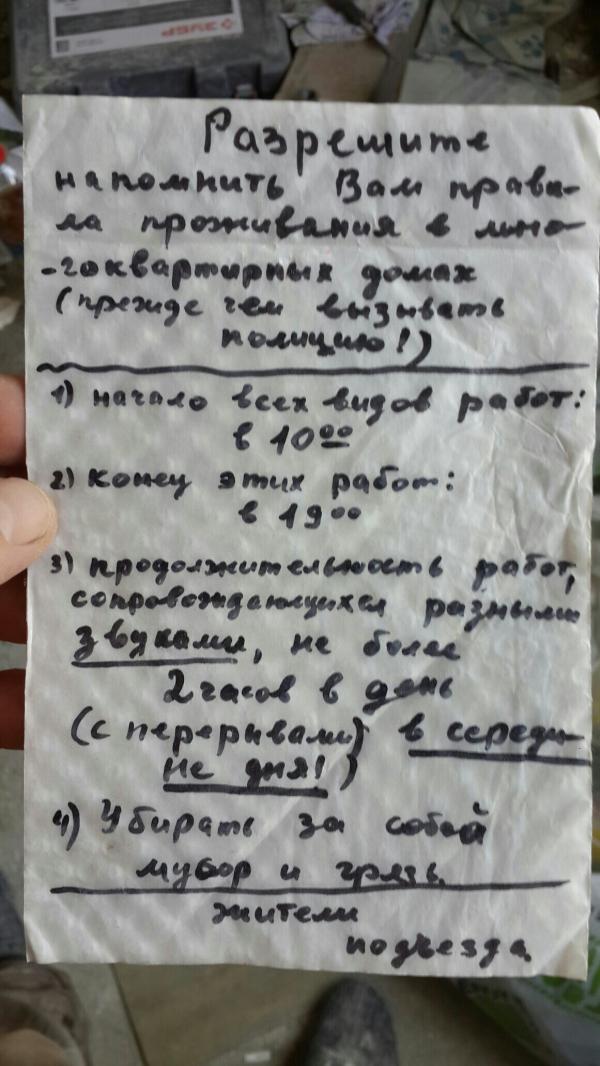 ЗУБР
Разрешите
напомнить Вам прави-
ла проживания в мно-
-гоквартирных домах
(прежде чем вызывать
полицию!)
1) начало всех видов работ:
в 10⁰⁰
2) конец этих работ:
в 19⁰⁰
3) продолжительность работ,
сопровождающихся разными
звуками, не более
2 часов в день
(с перерывами) в середи-
не дня!)
4) Убирать за собой
мусор и грязь.
жители
подъезда.